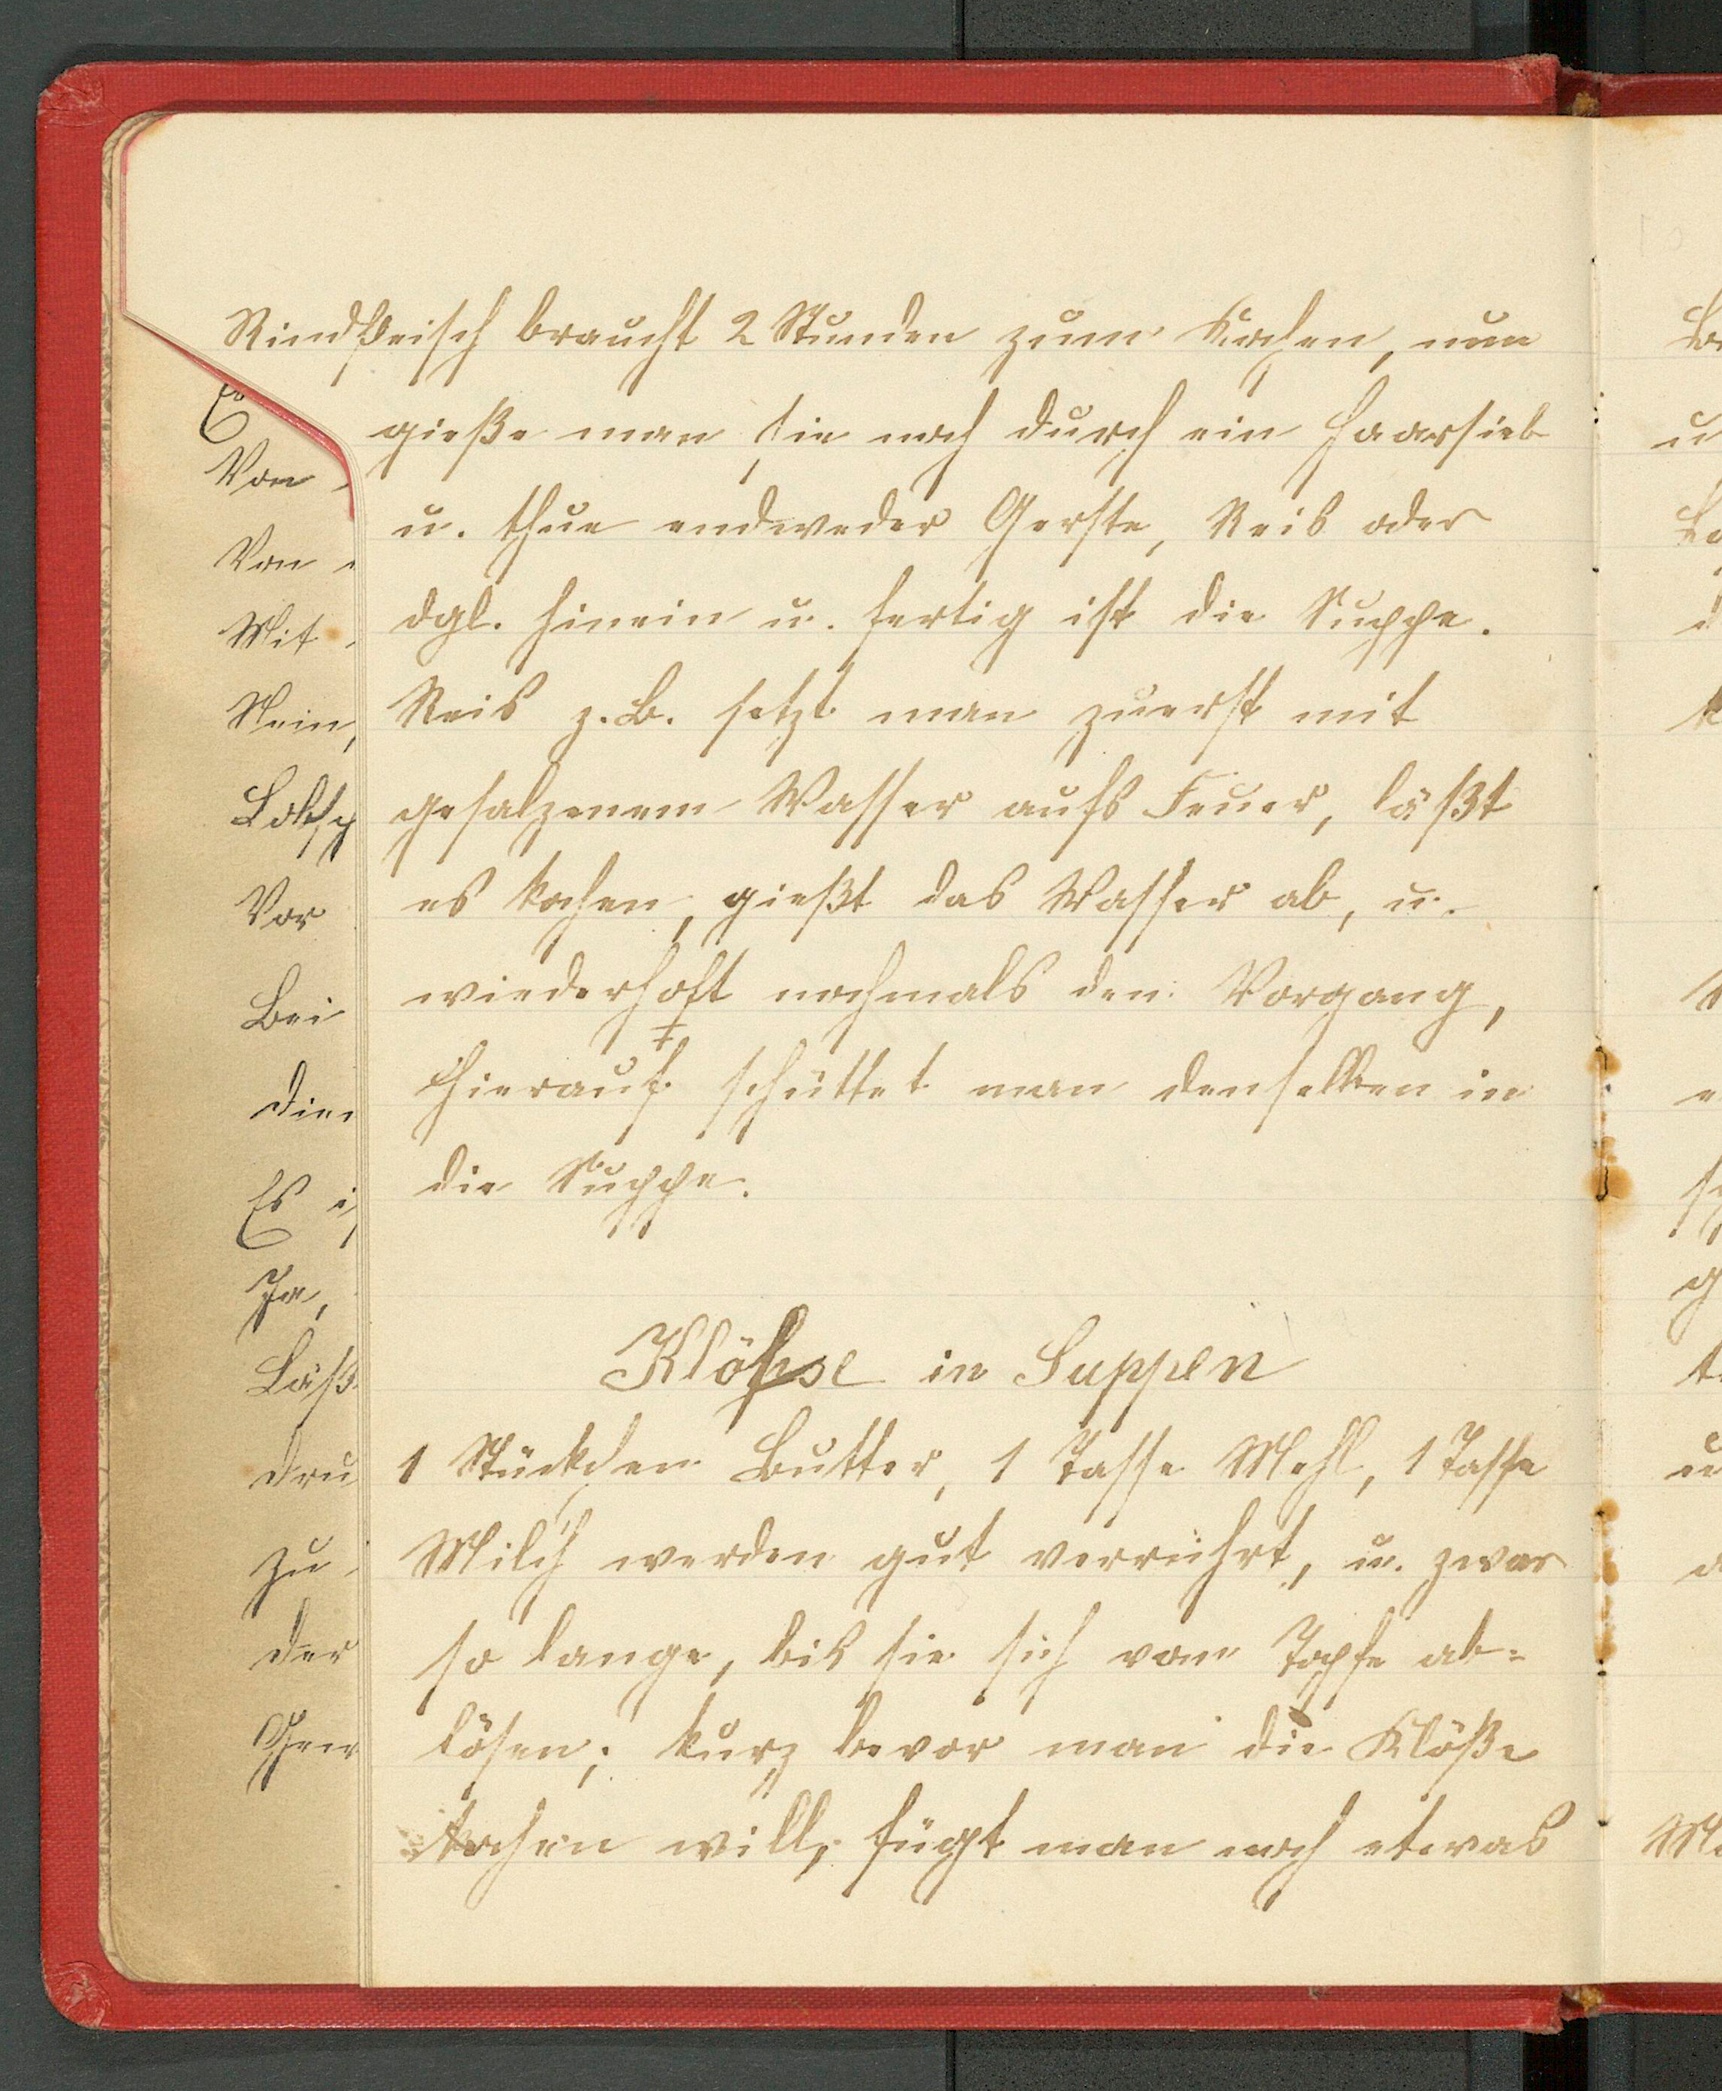 Rindfleisch braucht 2 Stunden zum Kochen, nun
gieße man sie noch durch ein Haarsieb
u. thue endweder Gerste, Reis oder
dgl. hinein u. fertig ist die Suppe.
Reis z. B. setzt man zuerst mit
gesalzenem Wasser aufs Feuer, läßt
es kochen, gießt das Wasser ab, u.
wiederholt nochmals den Vorgang,
hierauf schüttet man denselben in
die Suppe.
Klöße in Suppen
1 Stückchen Butter, 1 Tasse Mehl, 1 Tasse
Milch werden gut verrührt, u. zwar
so lange, bis sie sich vom Topfe ab-
lösen; kurz bevor man die Klöße
kochen will, fügt man noch etwas
Von
Von
Mit
Nein,
Vor
Bei
Es
Ja,
zu
der